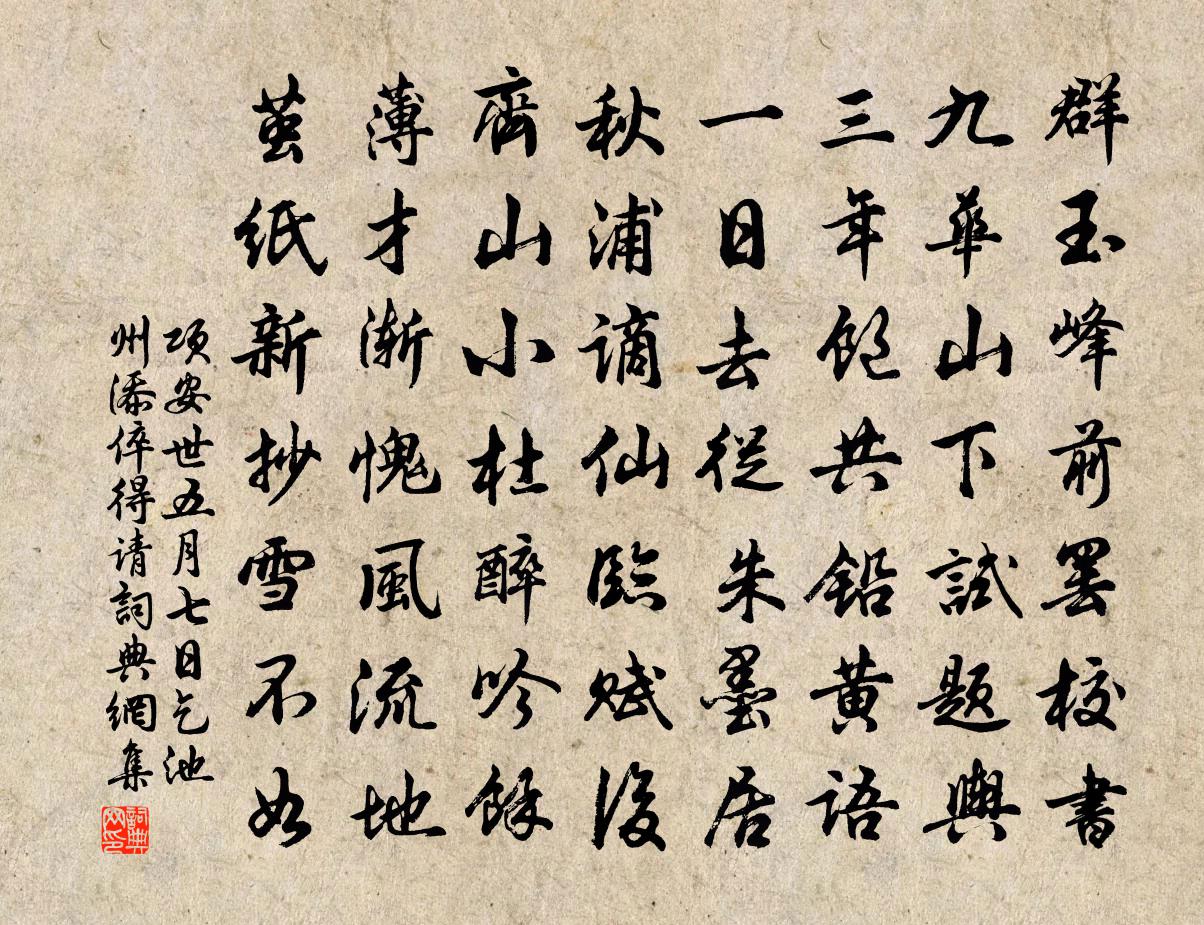 群玉峰前罢校書
九華山下試題輿
三年飽共鉛黄語
一日去從朱墨居
秋浦謫仙臨賦後
齊山小杜醉吟餘
薄才漸愧風流地
茧紙新抄雪不如
项安世五月七日乞池
州添倅得请詞典網集
詞典網印